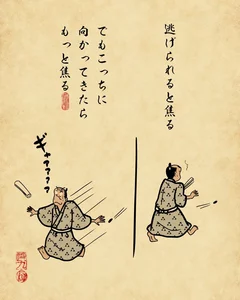 逃げられると焦る
でもこっちに
向かってきたら
もっと焦る
ギャアアアア